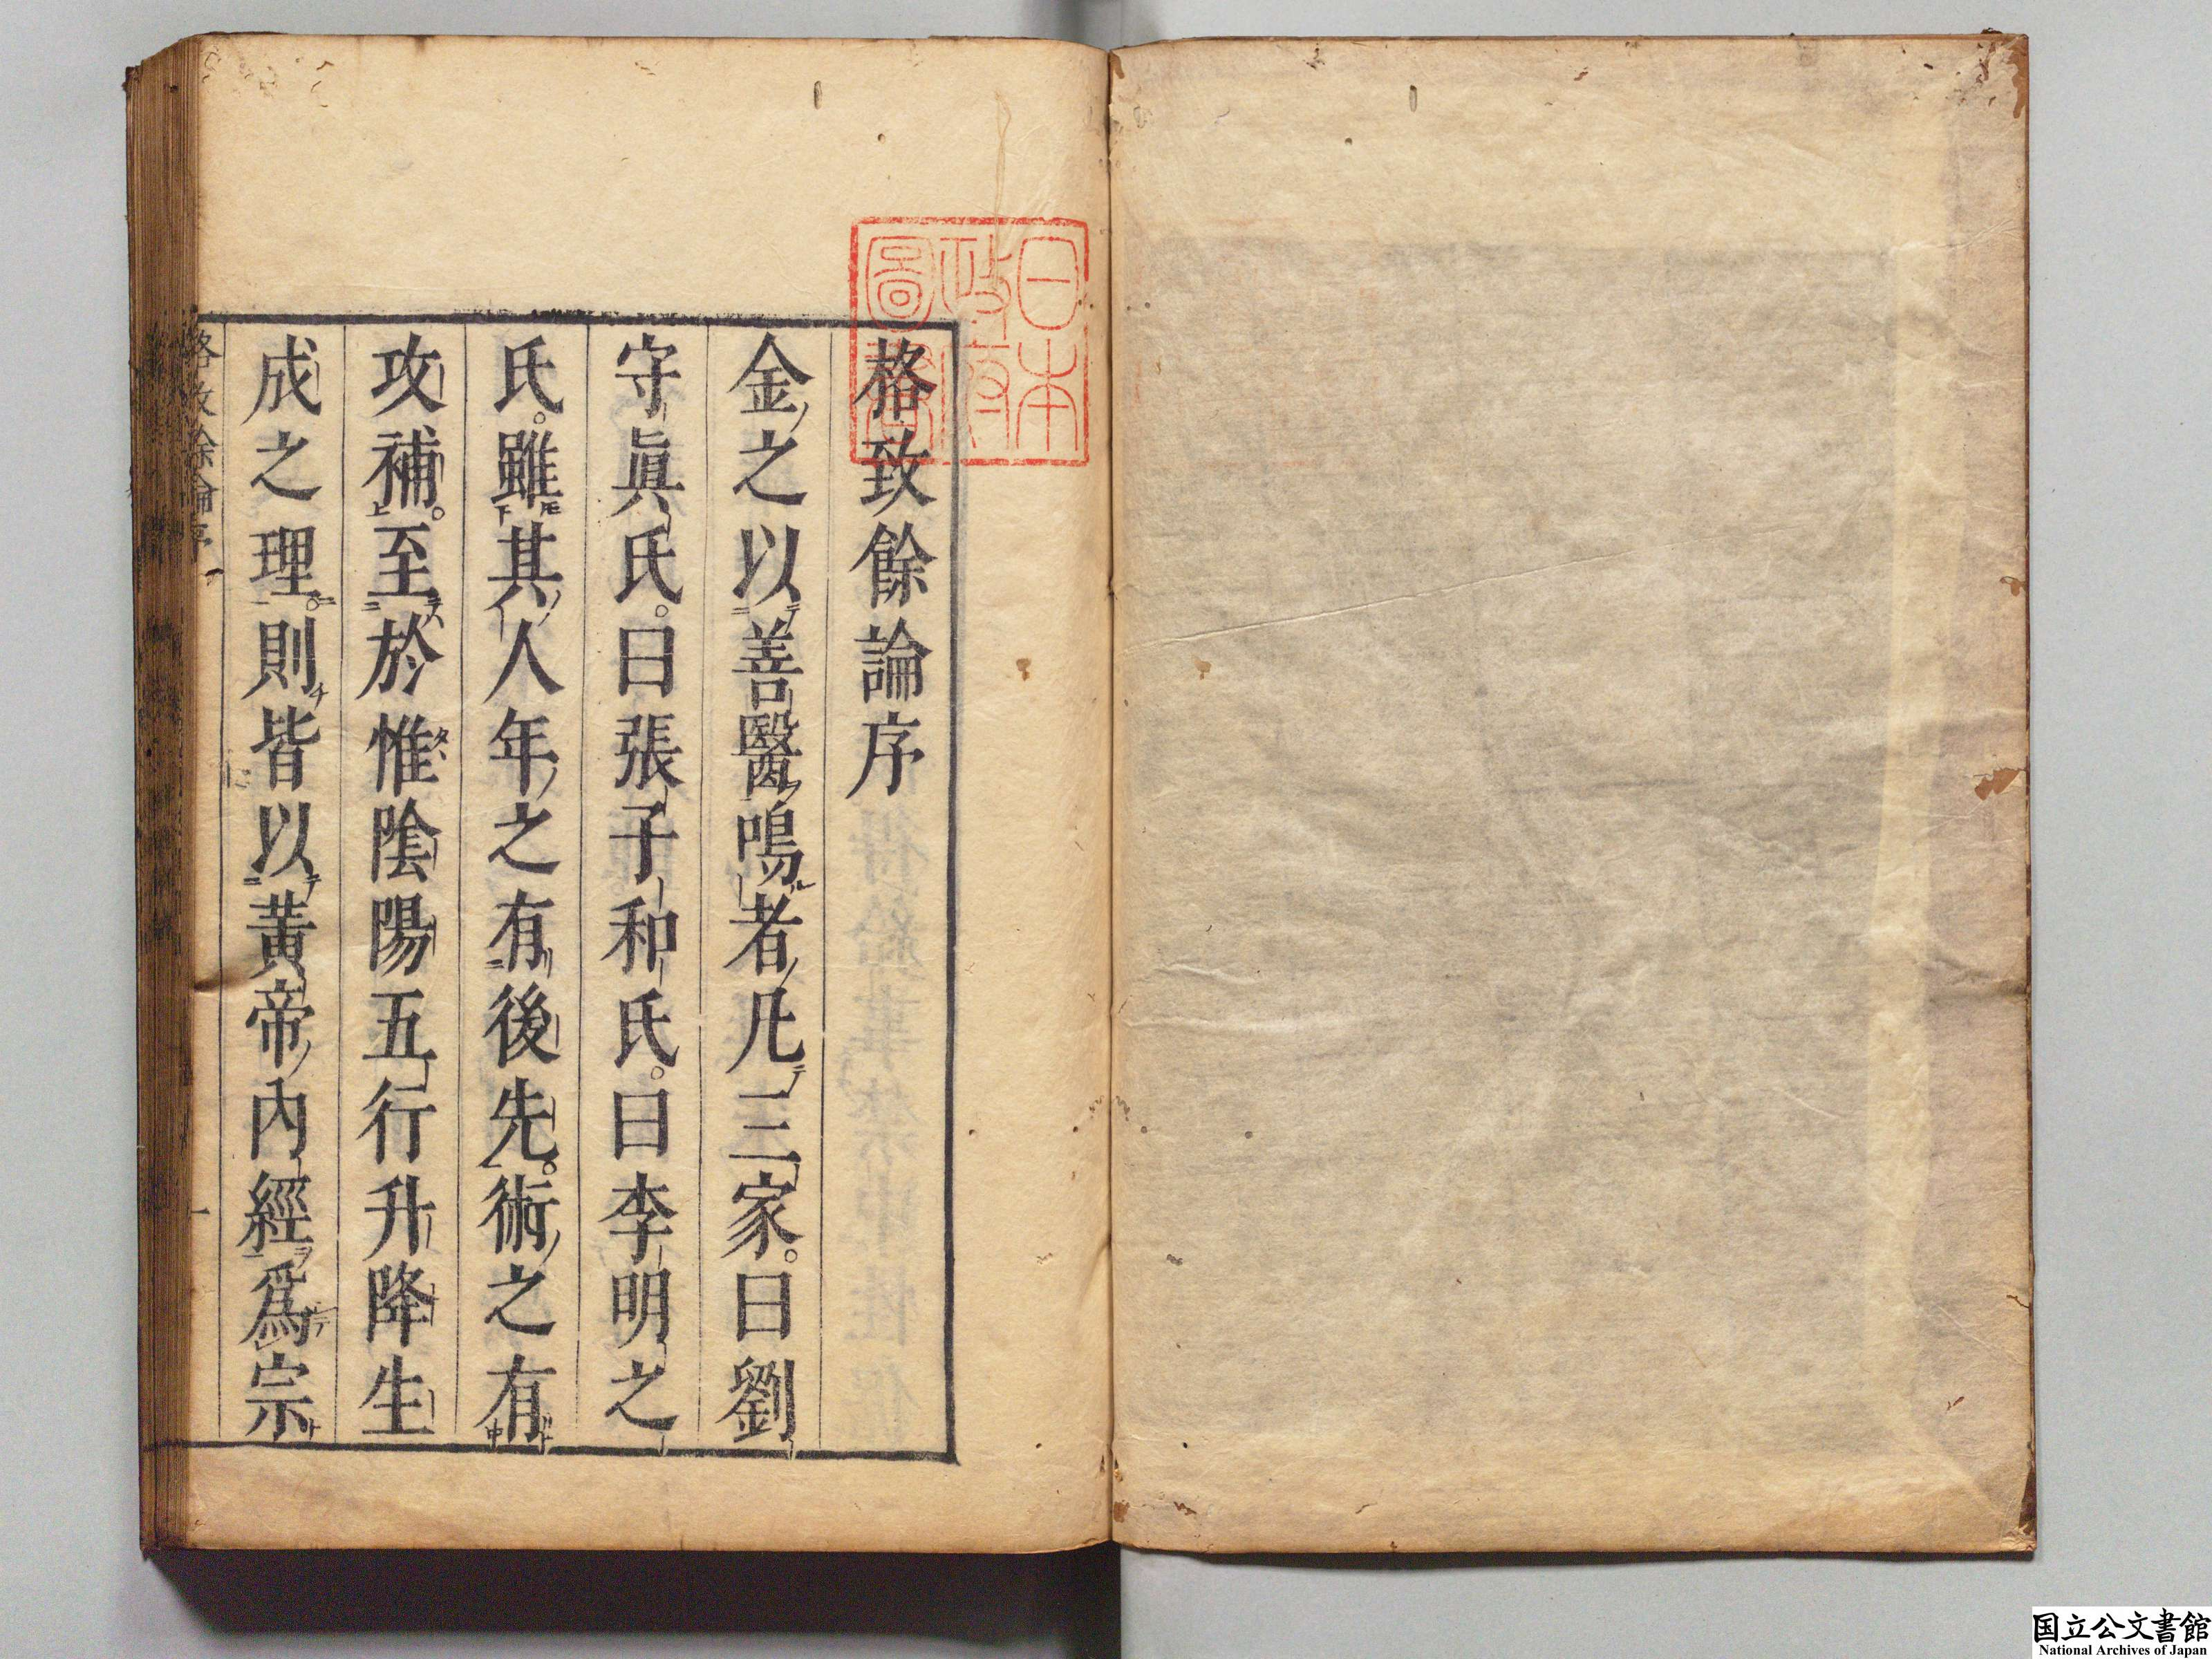 格致餘論序
金之以善醫鳴者凡三家。曰劉
守眞氏。曰張子和氏。曰李明之
氏。雖其人年之有後先。術之有
攻補。至於惟陰陽五行升降生
成之理。則皆以黃帝內經爲宗
格致餘論序
一
日本
政府
圖書
国立公文書館
National Archives of Japan